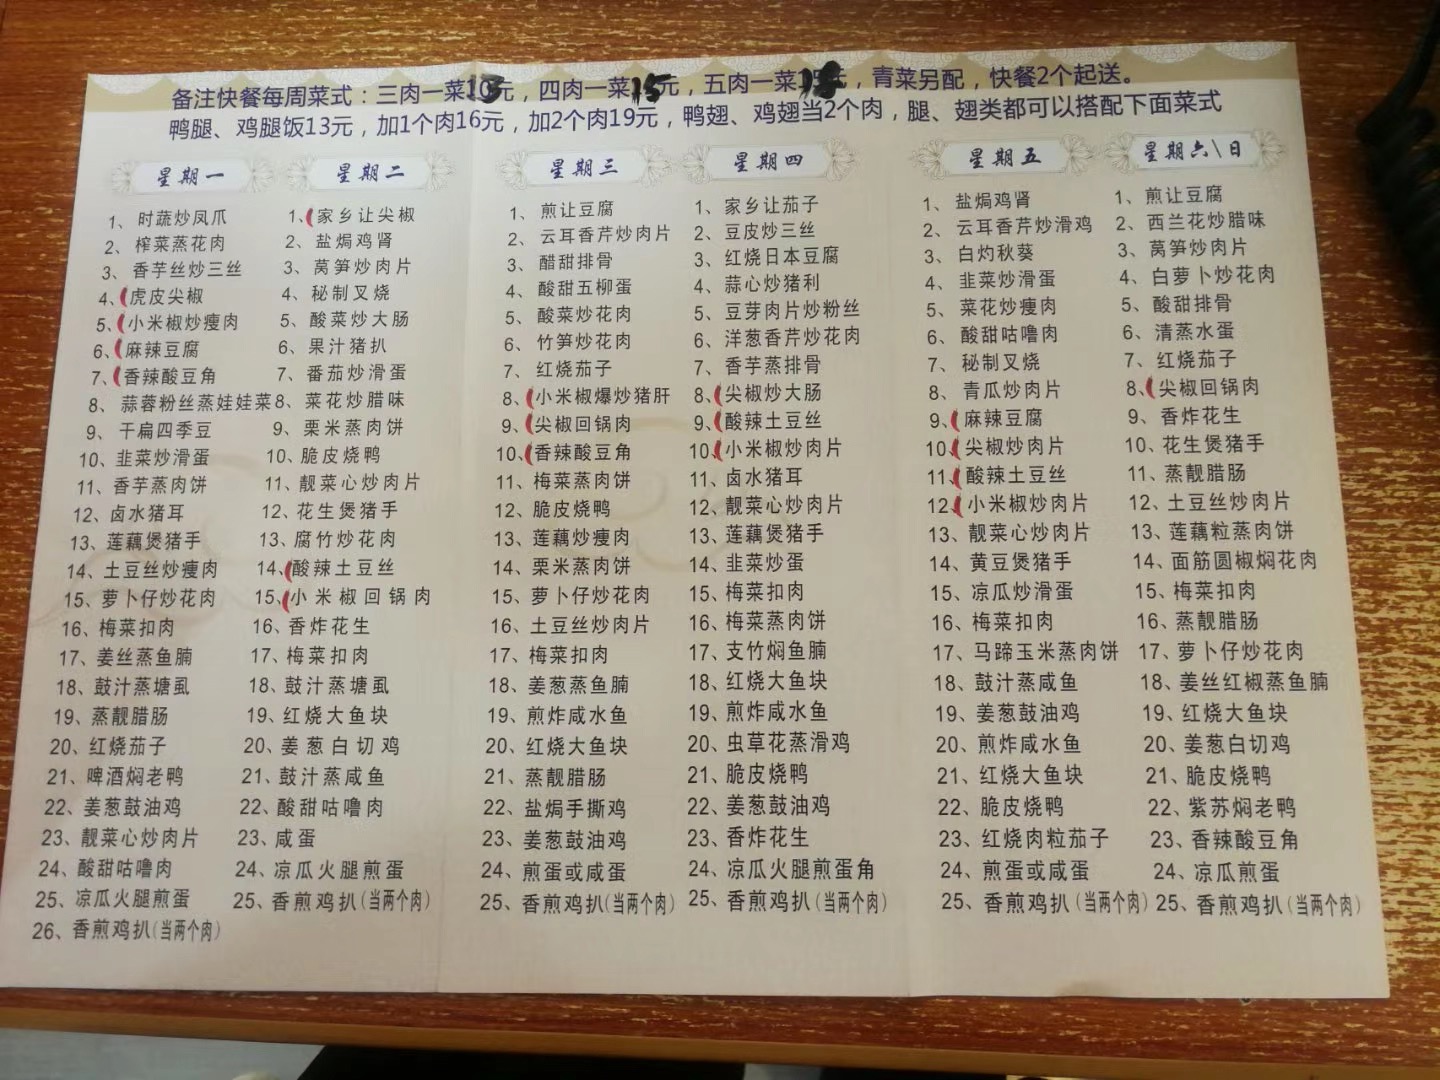 备注快餐每周菜式：三肉一菜13元，四肉一菜15元，五肉一菜18元，青菜另配，快餐2个起送。
鸭腿、鸡腿饭13元，加1个肉16元，加2个肉19元，鸭翅、鸡翅当2个肉，腿、翅类都可以搭配下面菜式
星期一
1、时蔬炒凤爪
2、榨菜蒸花肉
3、香芋丝炒三丝
4、虎皮尖椒
5、小米椒炒瘦肉
6、麻辣豆腐
7、香辣酸豆角
8、蒜蓉粉丝蒸娃娃菜
9、干扁四季豆
10、韭菜炒滑蛋
11、香芋蒸肉饼
12、卤水猪耳
13、莲藕煲猪手
14、土豆丝炒瘦肉
15、萝卜仔炒花肉
16、梅菜扣肉
17、姜丝蒸鱼腩
18、鼓汁蒸塘虱
19、蒸靓腊肠
20、红烧茄子
21、啤酒焖老鸭
22、姜葱鼓油鸡
23、靓菜心炒肉片
24、酸甜咕噜肉
25、凉瓜火腿煎蛋
26、香煎鸡扒(当两个肉)
星期二
1、家乡让尖椒
2、盐焗鸡肾
3、莴笋炒肉片
4、秘制叉烧
5、酸菜炒大肠
6、果汁猪扒
7、番茄炒滑蛋
8、菜花炒腊味
9、栗米蒸肉饼
10、脆皮烧鸭
11、靓菜心炒肉片
12、花生煲猪手
13、腐竹炒花肉
14、酸辣土豆丝
15、小米椒回锅肉
16、香炸花生
17、梅菜扣肉
18、鼓汁蒸塘虱
19、红烧大鱼块
20、姜葱白切鸡
21、鼓汁蒸咸鱼
22、酸甜咕噜肉
23、咸蛋
24、凉瓜火腿煎蛋
25、香煎鸡扒(当两个肉)
星期三
1、煎让豆腐
2、云耳香芹炒肉片
3、醋甜排骨
4、酸甜五柳蛋
5、酸菜炒花肉
6、竹笋炒花肉
7、红烧茄子
8、小米椒爆炒猪肝
9、尖椒回锅肉
10、香辣酸豆角
11、梅菜蒸肉饼
12、脆皮烧鸭
13、莲藕炒瘦肉
14、栗米蒸肉饼
15、萝卜仔炒花肉
16、土豆丝炒肉片
17、梅菜扣肉
18、姜葱蒸鱼腩
19、煎炸咸水鱼
20、红烧大鱼块
21、蒸靓腊肠
22、盐焗手撕鸡
23、姜葱鼓油鸡
24、煎蛋或咸蛋
25、香煎鸡扒(当两个肉)
星期四
1、家乡让茄子
2、豆皮炒三丝
3、红烧日本豆腐
4、蒜心炒猪利
5、豆芽肉片炒粉丝
6、洋葱香芹炒花肉
7、香芋蒸排骨
8、尖椒炒大肠
9、酸辣土豆丝
10、小米椒炒肉片
11、卤水猪耳
12、靓菜心炒肉片
13、莲藕煲猪手
14、韭菜炒蛋
15、梅菜扣肉
16、梅菜蒸肉饼
17、支竹焖鱼腩
18、红烧大鱼块
19、煎炸咸水鱼
20、虫草花蒸滑鸡
21、脆皮烧鸭
22、姜葱鼓油鸡
23、香炸花生
24、凉瓜火腿煎蛋角
25、香煎鸡扒(当两个肉)
星期五
1、盐焗鸡肾
2、云耳香芹炒滑鸡
3、白灼秋葵
4、韭菜炒滑蛋
5、菜花炒瘦肉
6、酸甜咕噜肉
7、秘制叉烧
8、青瓜炒肉片
9、麻辣豆腐
10、尖椒炒肉片
11、酸辣土豆丝
12、小米椒炒肉片
13、靓菜心炒肉片
14、黄豆煲猪手
15、凉瓜炒滑蛋
16、梅菜扣肉
17、马蹄玉米蒸肉饼
18、鼓汁蒸咸鱼
19、姜葱鼓油鸡
20、煎炸咸水鱼
21、红烧大鱼块
22、脆皮烧鸭
23、红烧肉粒茄子
24、煎蛋或咸蛋
25、香煎鸡扒(当两个肉)
星期六\日
1、煎让豆腐
2、西兰花炒腊味
3、莴笋炒肉片
4、白萝卜炒花肉
5、酸甜排骨
6、清蒸水蛋
7、红烧茄子
8、尖椒回锅肉
9、香炸花生
10、花生煲猪手
11、蒸靓腊肠
12、土豆丝炒肉片
13、莲藕粒蒸肉饼
14、面筋圆椒焖花肉
15、梅菜扣肉
16、蒸靓腊肠
17、萝卜仔炒花肉
18、姜丝红椒蒸鱼腩
19、红烧大鱼块
20、姜葱白切鸡
21、脆皮烧鸭
22、紫苏焖老鸭
23、香辣酸豆角
24、凉瓜煎蛋
25、香煎鸡扒(当两个肉)